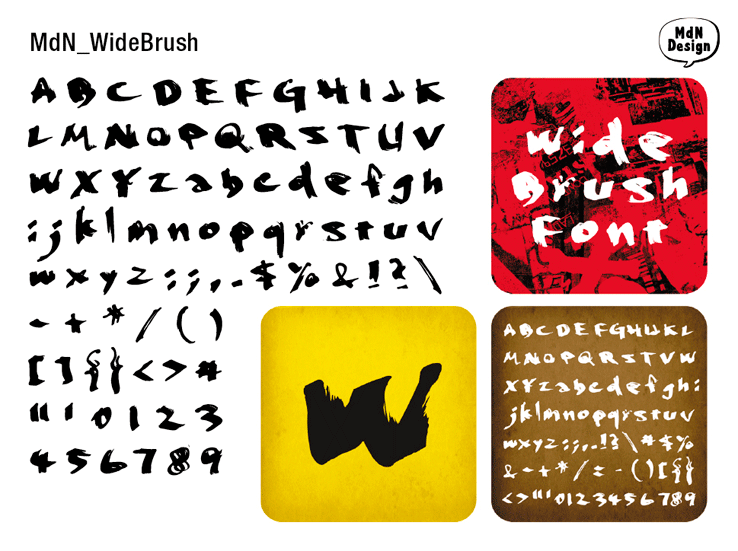 MdN_WideBrush
MdN
Design
A B C D E F G H I J K
L M N O P Q R S T U V
W X Y Z a b c d e f g h
i j k l m n o p q r s t u v
w x y z : ; , . - $ % & ! ? \
- + * / ( )
[ ] { } < > #
" ' 0 1 2 3
4 5 6 7 8 9
Wide
Brush
Font
W
A B C D E F G H I J K L
M N O P Q R S T U V W
X Y Z a b c d e f g h i
j k l m n o p q r s t u v
w x y z : ; , . ! ? \ # $ %
& - + * / = - ( ) [ { }
< > " ' 0 1 2 3 4 5 6 7 8 9